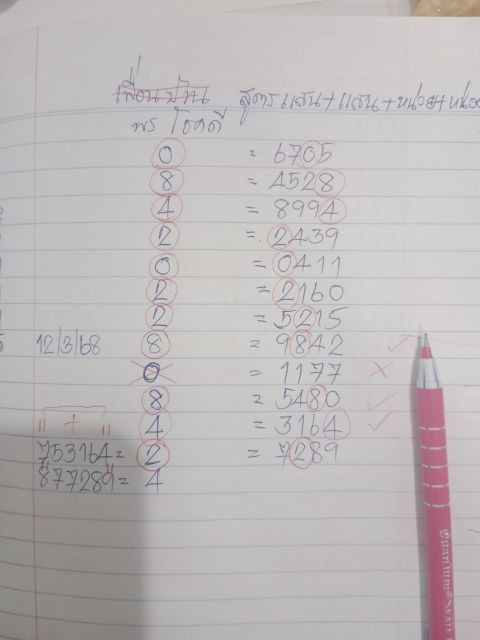 เพื่อน
สูตร แสน+แสน+หน่วย+หน่วย
พร โชคดี
0 = 6705
8 = 4528
4 = 8994
2 = 2439
0 = 0411
2 = 2160
2 = 5215
12/3/68 8 = 9842 ✓
0 = 1177 ×
8 = 5480 ✓
+ 4 = 3164 ✓
753164 = 2 = 7289
877289 = 4